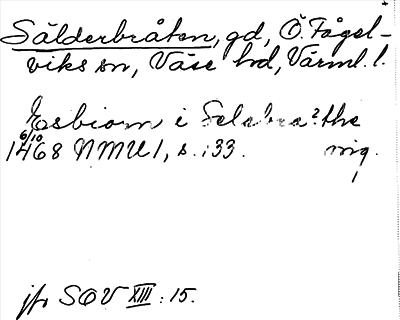 Sälderbråten, gd, Ö. Fågel-
viks sn, Väse hd, Värml. l.
Esbiorn i Selabra? the
6/10
1468 NMU 1, s. 133.
jfr SOV XIII: 15.